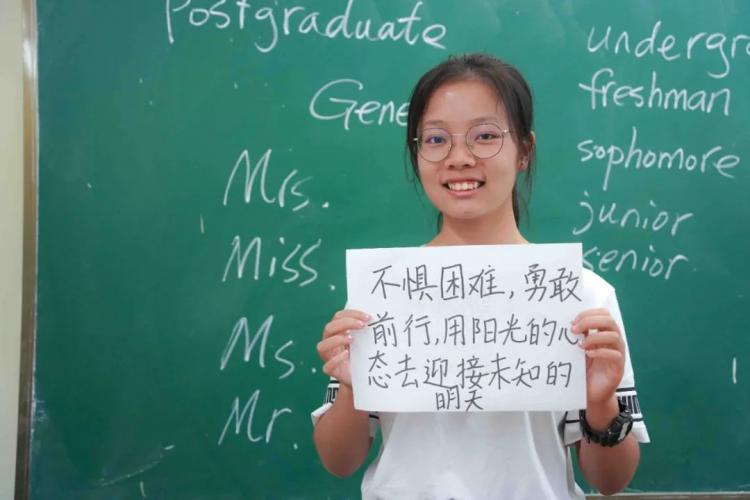 Postgraduate
Gene
Mrs.
Miss.
Ms.
Mr.
undergra
freshman
sophomore
junior
senior
不惧困难，勇敢
前行，用阳光的心
态去迎接未知的
明天